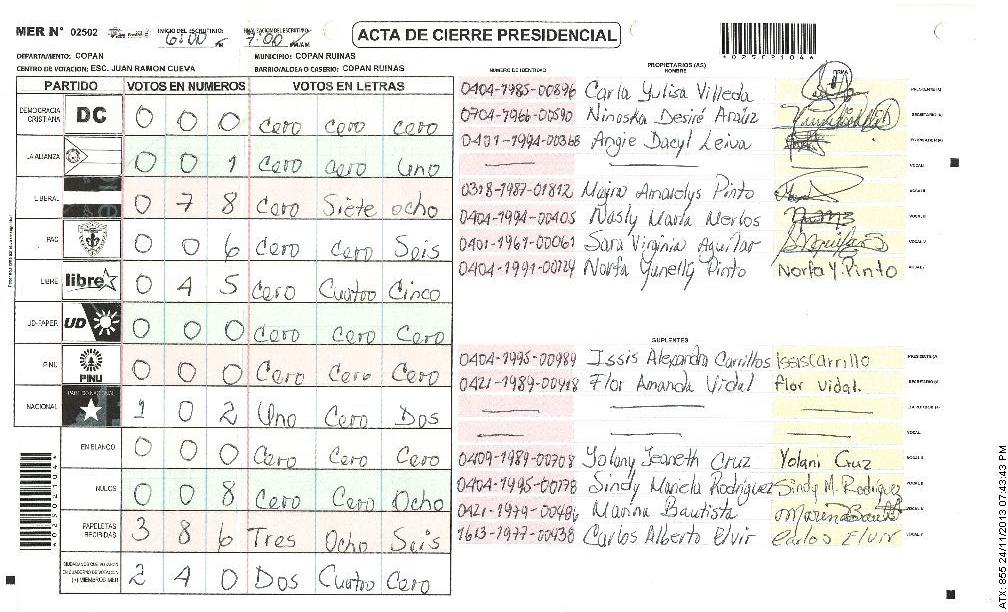 MER N° 02502
INICIO DEL ESCRUTINIO: 6:00 PM
7:00 PM/AM
ACTA DE CIERRE PRESIDENCIAL
*02502104*
DEPARTAMENTO: COPAN
MUNICIPIO: COPAN RUINAS
CENTRO DE VOTACION: ESC. JUAN RAMON CUEVA
BARRIO/ALDEA O CASERIO: COPAN RUINAS
PARTIDO VOTOS EN NUMEROS VOTOS EN LETRAS
DEMOCRACIA CRISTIANA DC 0 0 0 Cero Cero Cero
LA ALIANZA 0 0 1 Cero Cero Uno
LIBERAL 0 7 8 Cero Siete ocho
PAC 0 0 6 Cero Cero Seis
LIBRE libre 0 4 5 Cero Cuatro Cinco
UD-FAPER UD 0 0 0 Cero Cero Cero
PINU PINU 0 0 0 Cero Cero Cero
NACIONAL 1 0 2 Uno Cero Dos
EN BLANCO 0 0 0 Cero Cero Cero
NULOS 0 0 8 Cero Cero Ocho
PAPELETAS RECIBIDAS 3 8 6 Tres Ocho Seis
CIUDADANOS QUE VOTARON EN CUADERNO DE VOTACION (+) MIEMBROS MER 2 4 0 Dos Cuatro Cero
*02502104*
NUMERO DE IDENTIDAD
PROPIETARIOS (AS)
NOMBRE
FIRMA
0404-1985-00896 Carla Yulisa Villeda PRESIDENTE (A)
0704-1966-00590 Ninoska Desiré Aráuz SECRETARIO (A)
0401-1994-00368 Angie Dacyl Leiva
0318-1987-01812 Amarelys Pinto
0404-1994-00405 Nasly María Merlos
0401-1961-00061 Sara Virginia Aguilar
0404-1991-00124 Norfa Yunelly Pinto Norfa Y. Pinto
SUPLENTES
0404-1995-00989 Issis Alexandra Carrillos Issis Carrillo PRESIDENTE (A)
0421-1989-00418 Flor Amanda Vidal flor vidal. SECRETARIO (A)
VOCAL
0409-1989-00708 Yolany Jeaneth Cruz Yolani Cruz
0404-1995-00178 Sindy Mariela Rodriguez Sindy M. Rodriguez
0421-1979-00486 Marina Bautista
1613-1977-00438 Carlos Alberto Elvir Carlos Elvir
ATX: 855 24/11/2013 07:43:43 PM